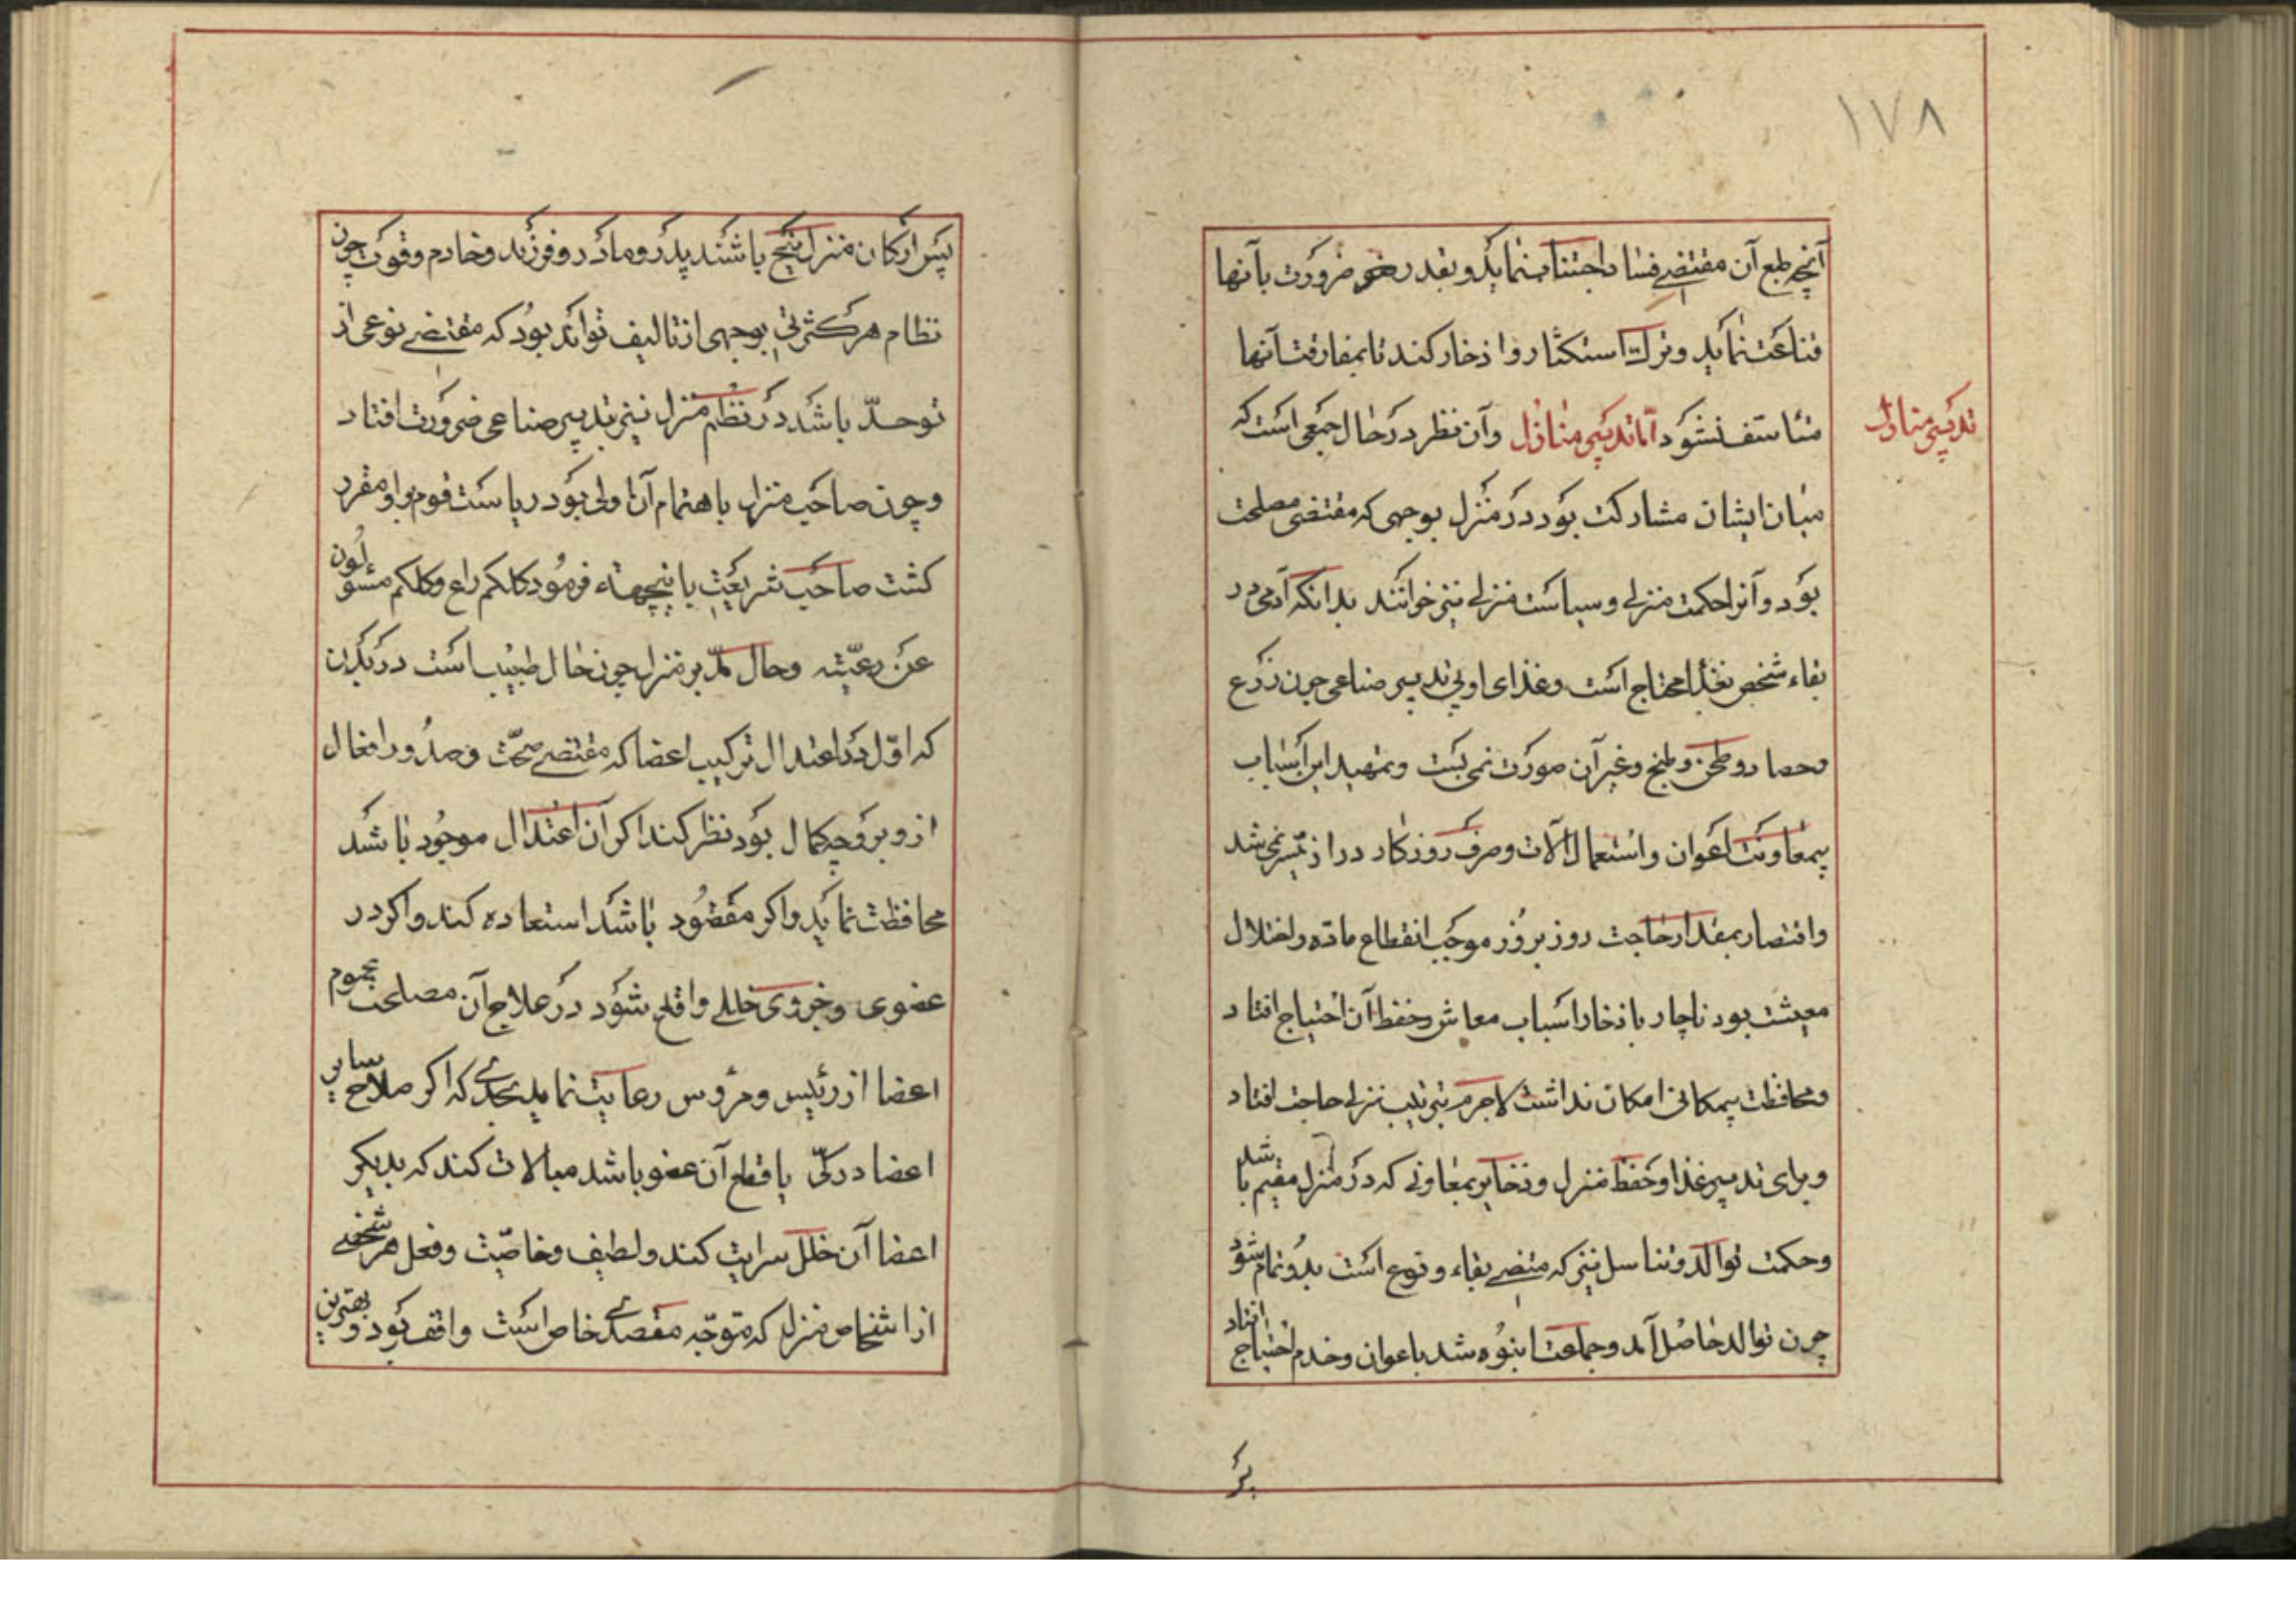 ۱۷۸
آنچه طبع آن مقتضی فساد اجتناب نماید و بقدر ضرورت بآنها
قناعت نماید و ترک استکثار و اذخار کند تا بمفارقت آنها
متاسف نشود اما تدبیر منازل و آن نظر در حال جمعی است که
تدبیر منازل
میان ایشان مشارکت بود در منزل بوجهی که مقتضی مصلحت
بود و آنرا حکمت منزلی و سیاست منزلی نیز خوانند بدانکه آدمی در
بقاء شخص بغذا محتاج است و غذای او بی تدبیر صناعی چون زرع
و حصاد و طحن و طبخ و غیر آن صورت نمی بست و تمهید این اسباب
بمعاونت اعوان و استعمال آلات و صرف روزکار دراز میسر نمی شد
و اقتصار بمقدار حاجت روز بروز موجب انقطاع ماده و اختلال
معیشت بود ناچار باذخار اسباب معاش و حفظ آن احتیاج افتاد
و محافظت بیمکانی امکان نداشت لاجرم بترتیب منزلی حاجت افتاد
و برای تدبیر غذا و حفظ منزل و ذخایر بمعاونی که در منزل مقیم باشد
و حکمت توالد و تناسل نیز که مقتضی بقاء نوع است بدو تمام شود
چون توالد حاصل آمد و جماعت انبوه شد باعوان و خدم احتیاج افتاد
پس
پس ارکان منزل پنج باشند پدر و مادر و فرزند و خادم و قوت چون
نظام هر کثرتی بوجهی از تالیف تواند بود که مقتضی نوعی از
توحد باشد در نظم منزل نیز بتدبیر صناعی ضرورت افتاد
و چون صاحب منزل باهتمام آن اولی بود ریاست قوم باو مفرد
کشت صاحب شریعت باینجهته فرمود کلکم راع و کلکم مسئولون
عن رعیته و حال مدبر منزل چون حال طبیب است در بدن
که اول در اعتدال ترکیب اعضا که مقتضی صحت و صدور افعال
ازو بر وجه کمال بود نظر کند اکر آن اعتدال موجود باشد
محافظت نماید و اکر مفقود باشد استعاده کند و اکر در
عضوی و جزوی خللی واقع شود در علاج آن مصلحت عموم
اعضا از رئیس و مرؤس رعایت نماید بحدی که اکر صلاح سایر
اعضا در کی یا قطع آن عضو باشد مبالات کند که بدیکر
اعضا آن خلل سرایت کند و لطیف و خاصیت و فعل هر شخصی
از اشخاص منزل که متوجه مقصدی خاص است واقف بود و بهترین